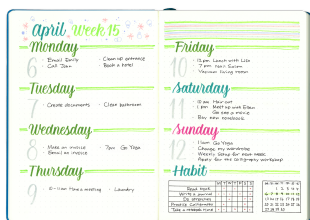 april Week 15
Monday
6
- Email Emily
- Call Tom
- Clean up entrance
- Book a hotel
Tuesday
7
- Create documents
- Clean bathroom
Wednesday
8
- Make an invoice
- Email an invoice
- 7pm Go Yoga
Thursday
9
- Laundry
Friday
10
- 12 pm Lunch with Lisa
- 7 pm Nail Salon
- Vacuum living room
Saturday
11
- 10 am Hair cut
- 1 pm Meet up with Ellen
Go see a movie
- Buy new notebooks
Sunday
12
- 11 am Go Yoga
- Change my wardrobe
- Weekly Setup for next week
- Apply for the calligraphy workshop
Habit
M T W T F S S
Read book
Write a journal
Do stretches
Practice Calligraphy